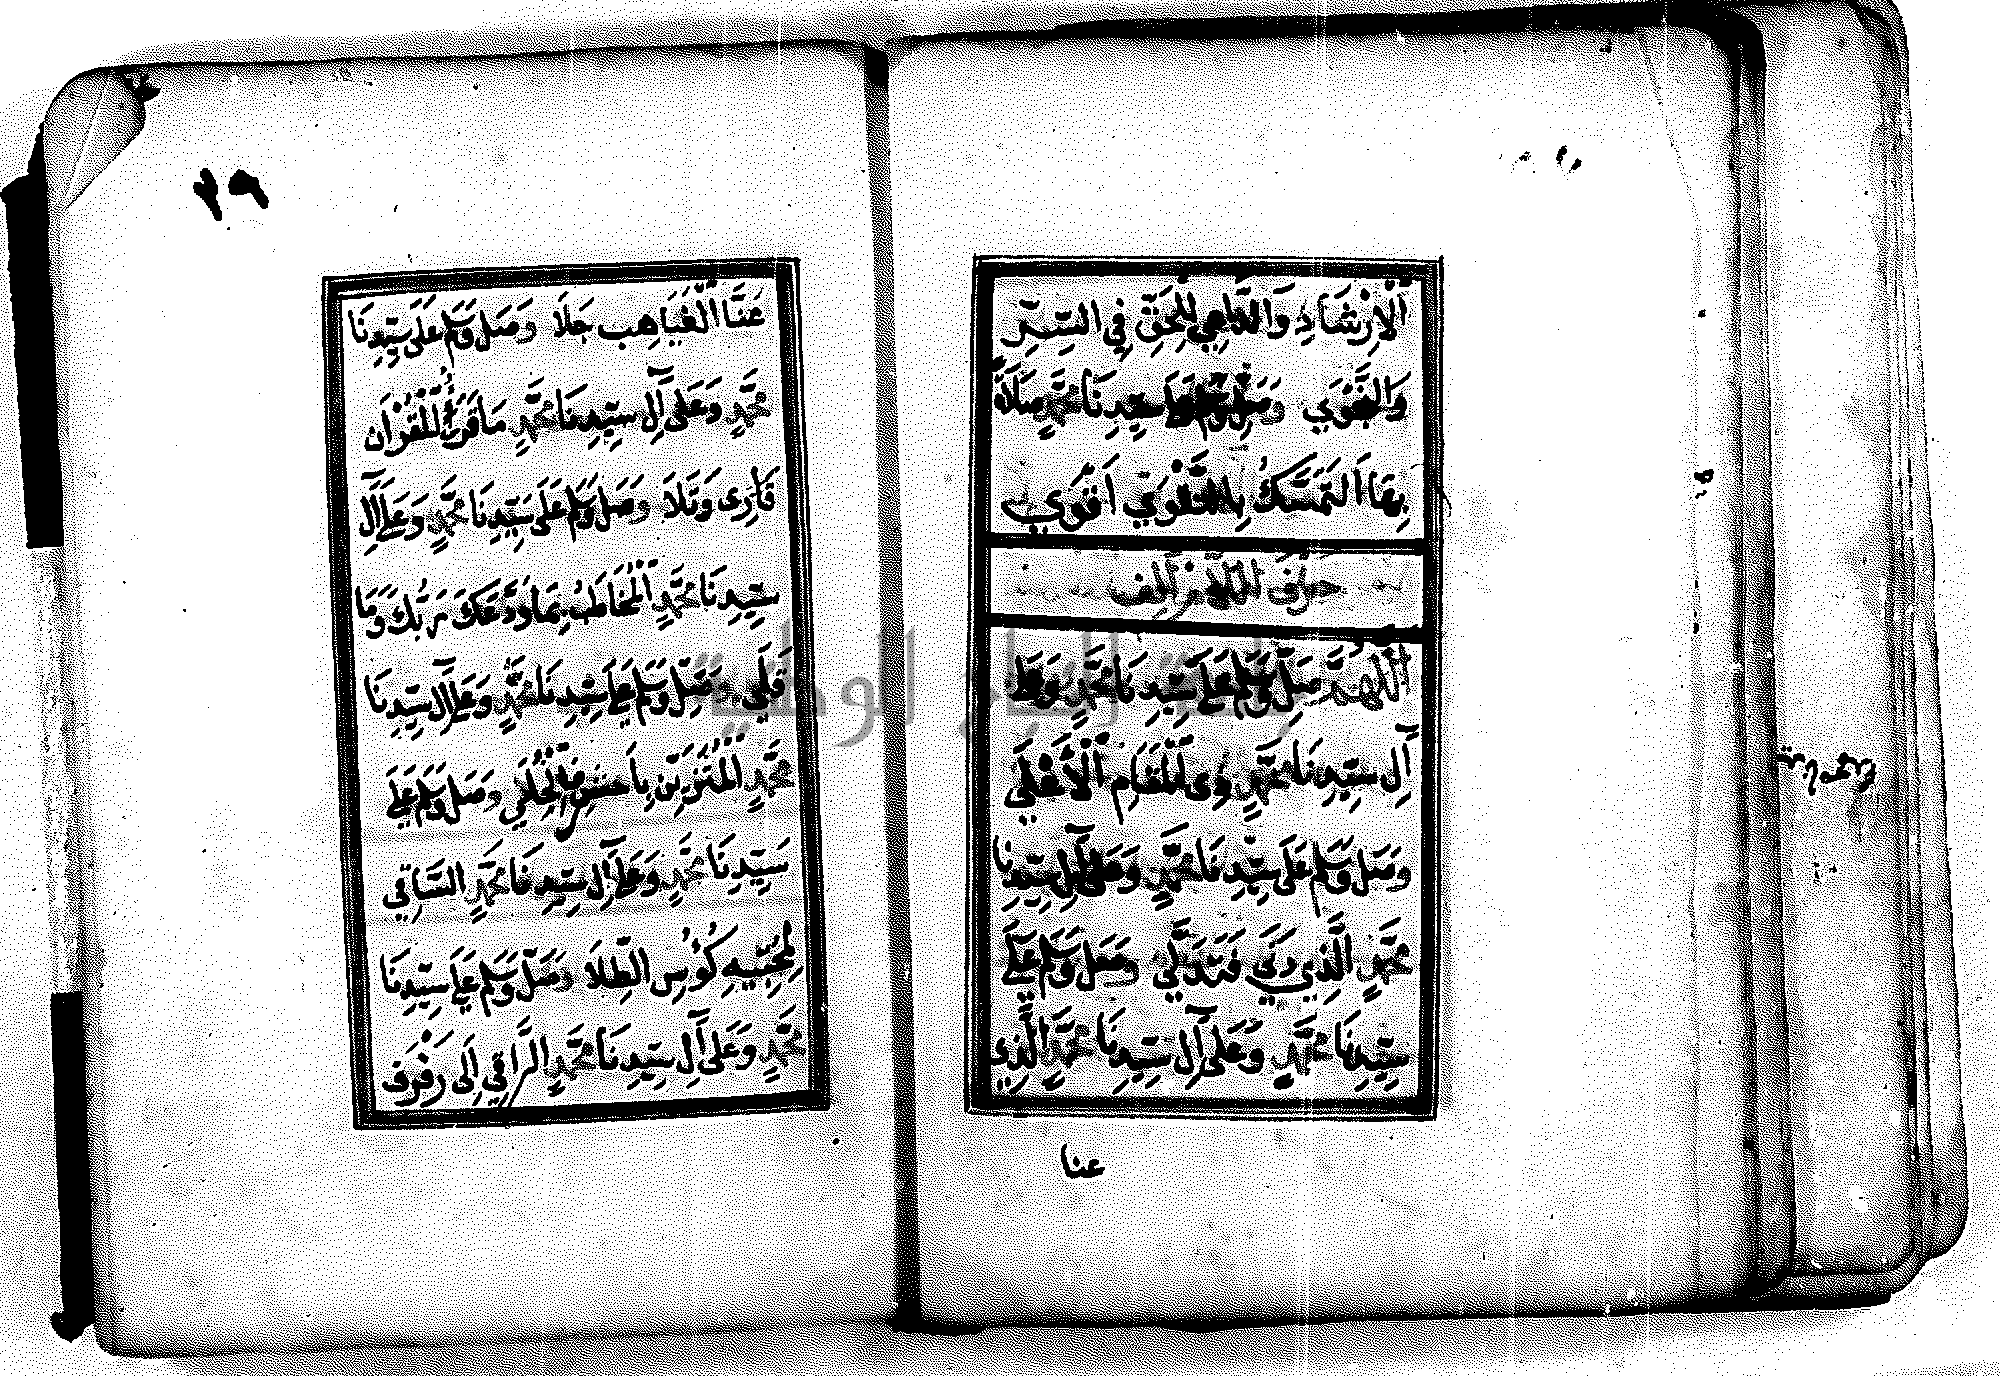 اَلْاِرْشَادِ وَالدَّاعِي لِلْحَقِّ فِي السِّرِّ
وَالنَّجْوَي وَصَلِّ وَسَلِّمْ عَلَى سَيِّدِنَا مُحَمَّدٍ صَلَاةً
بِهَا التَّمَسُّكُ بِالتَّقْوَي اَقْوَي
حرف اللام الف
اَللّٰهُمَّ صَلِّ وَسَلِّمْ عَلَى سَيِّدِنَا مُحَمَّدٍ وَعَلَى
آلِ سَيِّدِنَا مُحَمَّدٍ ذِى الْمَقَامِ الْاَعْلَي
وَصَلِّ وَسَلِّمْ عَلَى سَيِّدِنَا مُحَمَّدٍ وَعَلَى آلِ سَيِّدِنَا
مُحَمَّدٍ الَّذِي دَنَي فَتَدَلَّي وَصَلِّ وَسَلِّمْ عَلَى
سَيِّدِنَا مُحَمَّدٍ وَعَلَى آلِ سَيِّدِنَا مُحَمَّدٍ الَّذِي
عنا
٢٩
عَنَّا الْغَيَاهِبَ جَلَا وَصَلِّ وَسَلِّمْ عَلَى سَيِّدِنَا
مُحَمَّدٍ وَعَلَى آلِ سَيِّدِنَا مُحَمَّدٍ مَا قَرَأَ الْقُرْآنَ
قَارِى وَتَلَا وَصَلِّ وَسَلِّمْ عَلَى سَيِّدِنَا مُحَمَّدٍ وَعَلَى آلِ
سَيِّدِنَا مُحَمَّدٍ الْمُخَاطَبُ بِمَا وَدَّعَكَ رَبُّكَ وَمَا
قَلَي وَصَلِّ وَسَلِّمْ عَلَى سَيِّدِنَا مُحَمَّدٍ وَعَلَى آلِ سَيِّدِنَا
مُحَمَّدٍ الْمُتَزَيِّنِ بِاَحْسَنِ الْحُلَي وَصَلِّ وَسَلِّمْ عَلَى
سَيِّدِنَا مُحَمَّدٍ وَعَلَى آلِ سَيِّدِنَا مُحَمَّدٍ السَّاقِي
لِمُحِبِّيهِ كُؤُسَ الطِّلَا وَصَلِّ وَسَلِّمْ عَلَى سَيِّدِنَا
مُحَمَّدٍ وَعَلَى آلِ سَيِّدِنَا مُحَمَّدٍ الرَّاقِي اِلَى رَفْرَفِ